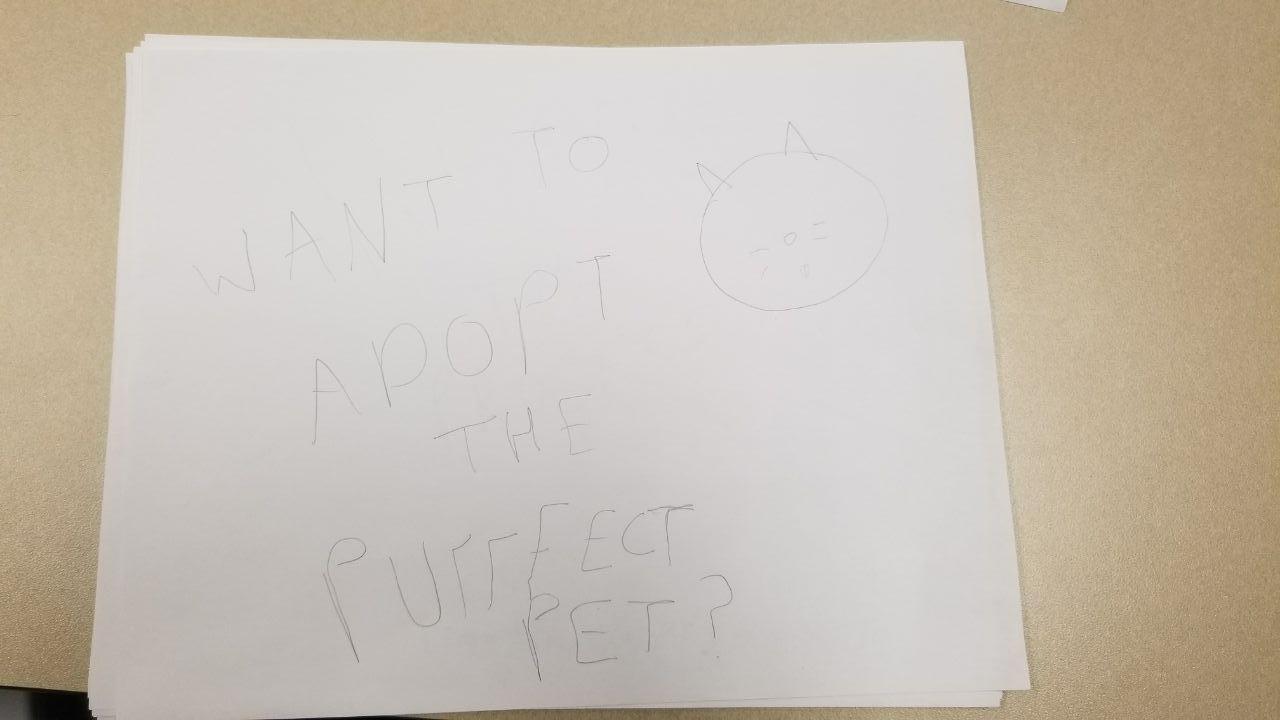 WANT TO
ADOPT
THE
PUrrFECT
PET?